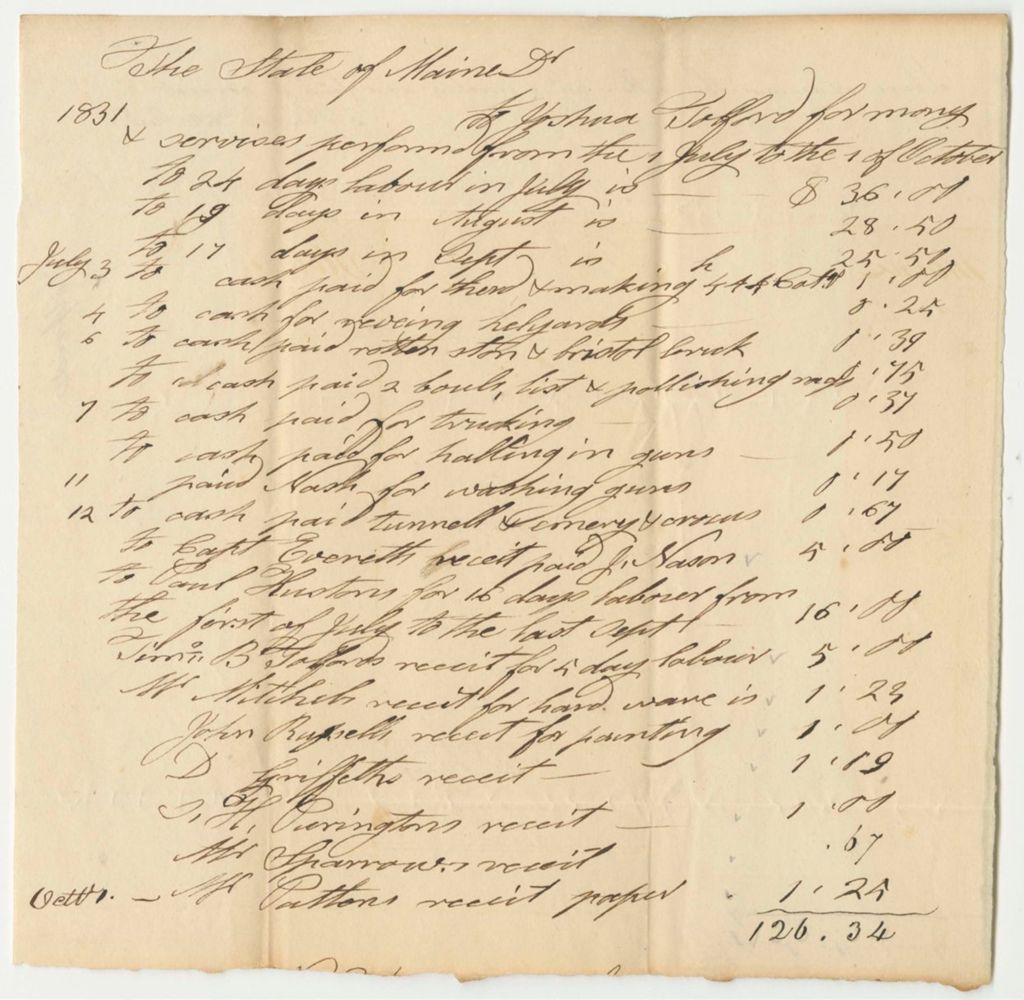 The State of Maine Dr
1831 to Joshua Tolford for money
& services performd from the 1 July to the 1 of October
to 24 days labour in July is — $ 36.00
to 19 days in August is — 28.50
to 17 days in Sept is 25.50
July 3 to cash paid for therd & making 544 1.00
4 to cash for reveing helyards 0.25
6 to cash paid rotten ston & bristol brick 1.39
to cash paid 2 bouls, list & pollishing .75
7 to cash paid for trucking — 0.37
to cash paid for halling in guns — 1.50
11 paid Nash for washing guns 0.17
12 to cash paid tunnell & emery & crocus 0.67
to Capt Everetts receit paid J. Nason 5.00
to Paul Hustons for 16 days labour from
the first of July to the last Sept — 16.00
Timo. B Tolfords receit for 5 day labour 5.00
Mr Mitchels receit for hard ware is 1.23
John Russells receit for painting 1.00
D Griffeths receit — 1.19
S. H. Puringtons receit — 1.00
Mr Sparrows receit .67
Octr 1. — Mr Pattens receit paper 1.25
126.34